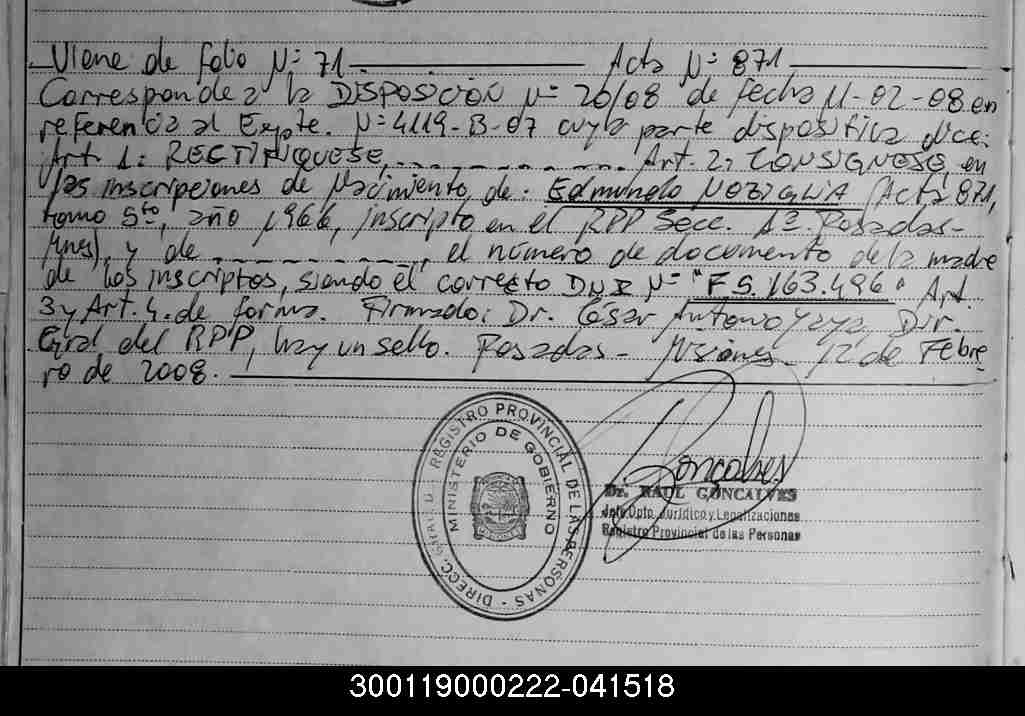 Viene de folio Nº 71. Acta Nº 871
Corresponde a la DISPOSICION Nº 20/08 de fecha 11-02-08 en
referencia al Expte. Nº 4119-B-07 cuya parte dispositiva dice:
Art 1: RECTIFIQUESE, Art. 2: CONSIGNESE, en
las inscripciones de Nacimiento, de: Edmundo NOBIGLIA (Acta 871,
tomo 5to, año 1966, inscripto en el RPP Secc. 1ª. Posadas-
Mnes), y de , el número de documento de la madre
de los inscriptos, siendo el correcto DNI Nº "F5.163.496" Art.
3 y Art. 4. de forma. Firmado: Dr. César Antonio Yaya, Dir.
Gral del RPP, hay un sello. Posadas- Misiones 12 de Febre
ro de 2008.
DIRECC. GRAL. DEL REGISTRO PROVINCIAL DE LAS PERSONAS
MINISTERIO DE GOBIERNO
Goncalves
Dr. RAUL GONCALVES
Jefe Dpto. Jurídico y Legalizaciones
Registro Provincial de las Personas
300119000222-041518